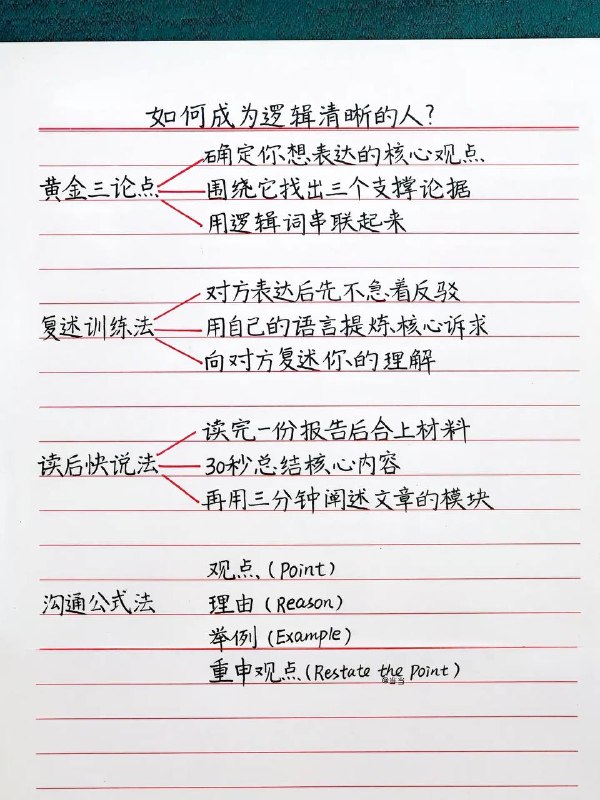 如何成为逻辑清晰的人?
确定你想表达的核心观点
黄金三论点 围绕它找出三个支撑论据
用逻辑词串联起来
对方表达后先不急着反驳
复述训练法 用自己的语言提炼核心诉求
向对方复述你的理解
读完一份报告后合上材料
读后快说法 30秒总结核心内容
再用三分钟阐述文章的模块
观点(Point)
沟通公式法 理由(Reason)
举例(Example)
重申观点(Restate the Point)
@当当